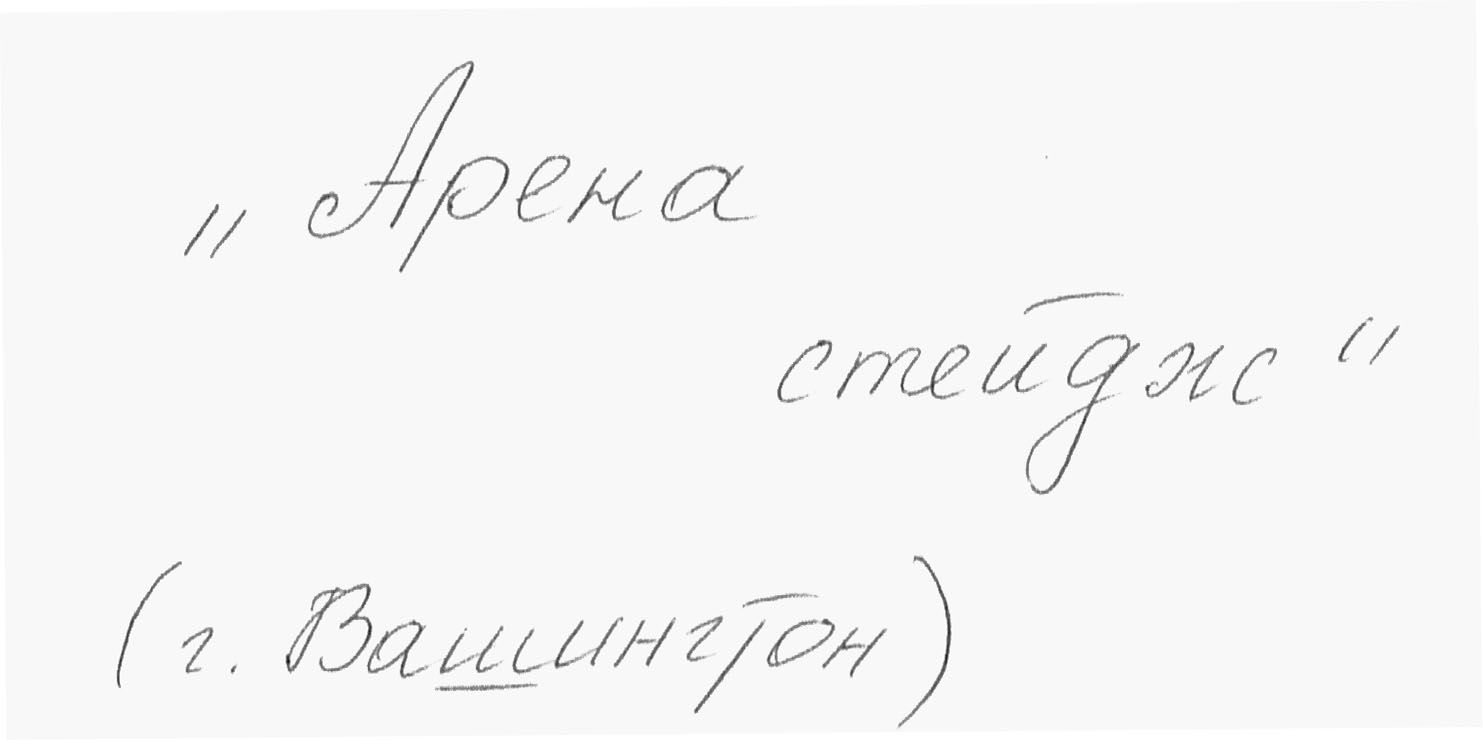 „Арена
стейдж“
(г. Вашингтон)